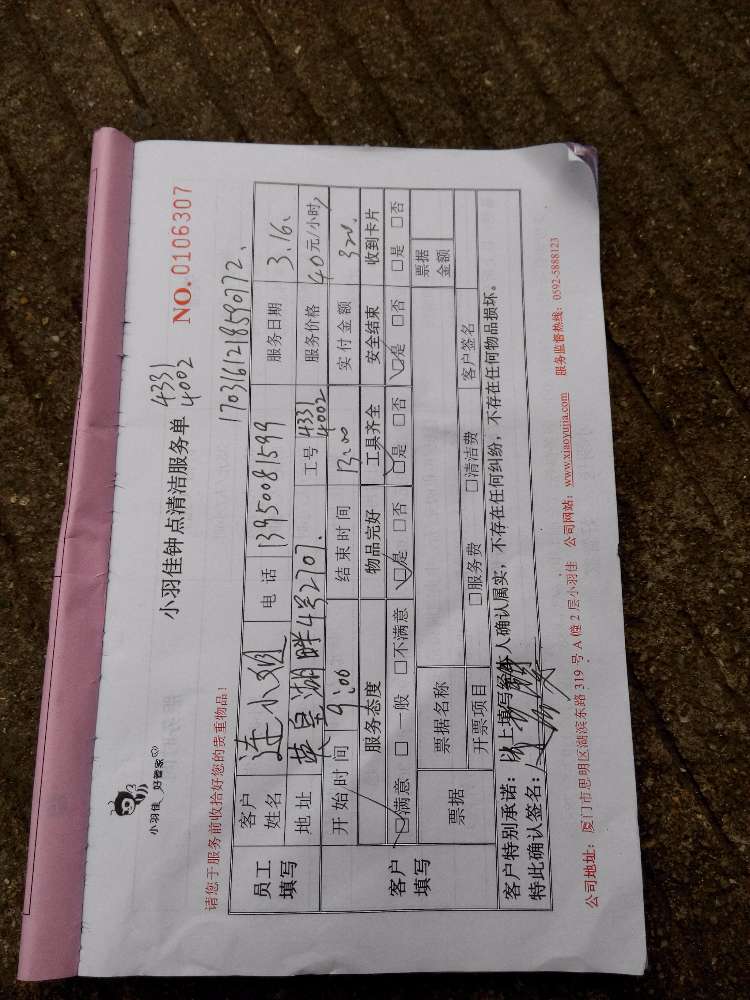 小羽佳 好管家
小羽佳钟点清洁服务单 4331 4002 NO.0106307
请您于服务前收拾好您的贵重物品!
170316121859072.
员工填写 客户姓名 连小姐 电话 13950081599 服务日期 3.16.
地址 英皇湖畔4号2707. 工号 4331 4002 服务价格 40元/小时
开始时间 9:00 结束时间 13:00 实付金额 320.
客户填写 服务态度 物品完好 工具齐全 安全结束 收到卡片
☑满意 □一般 □不满意 ☑是 □否 ☑是 □否 ☑是 □否 □是 □否
票据 票据名称 票据金额
开票项目 □服务费 □清洁费 客户签名
客户特别承诺: 以上填写经本人确认属实,不存在任何纠纷,不存在任何物品损坏。
特此确认签名:
公司地址: 厦门市思明区湖滨东路 319 号 A 幢 2 层小羽佳 公司网站: www.xiaoyujia.com 服务监督热线: 0592-5888123